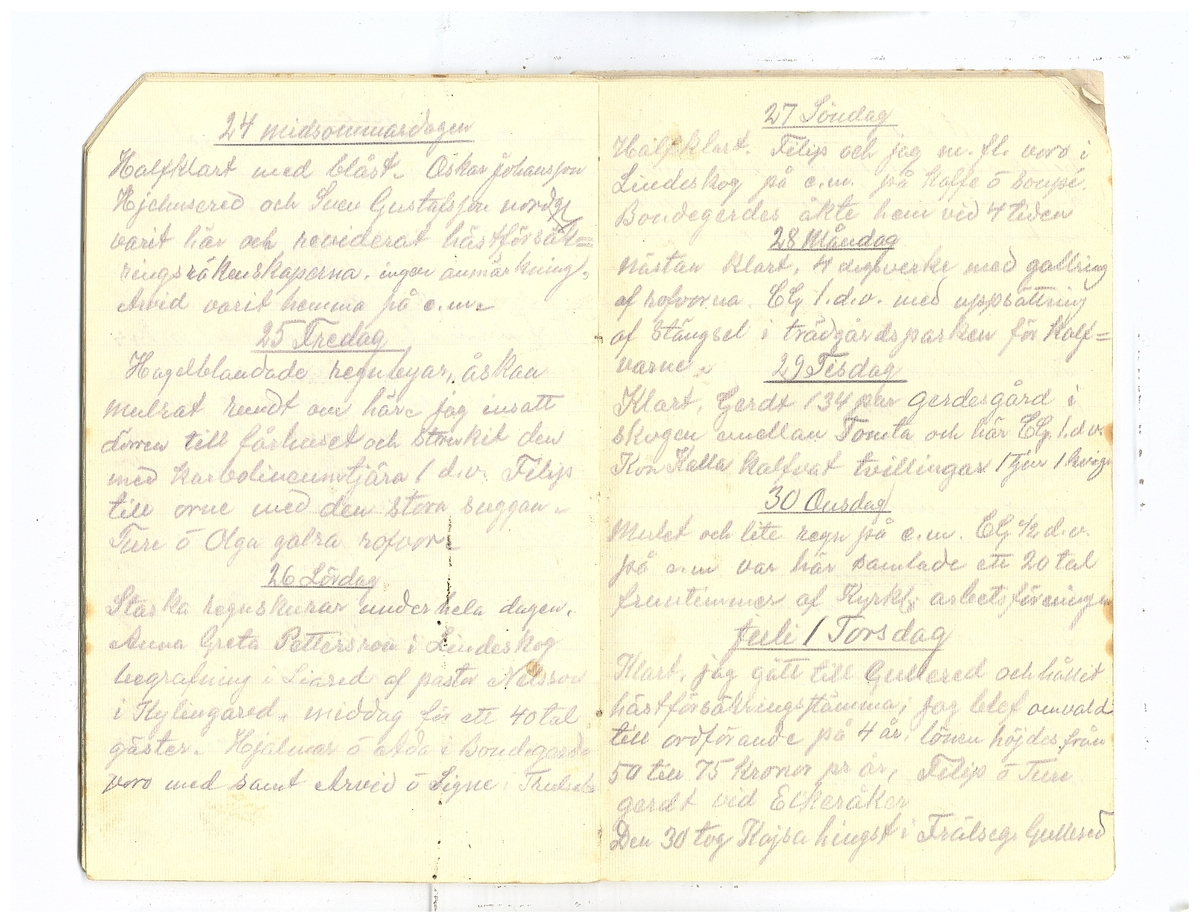 24 midsommarsdagen
Halfklart med blåst. Oskar Johansson
Hjelmsered och Sven Gustafsson
varit här och reviderat hästförsäk=
ringsräkenskaperna. ingen anmärkning.
Arvid varit hemma på e.m.
25 Fredag
Hagelblandade regnbyar, åskan
mulrat rundt om här. jag insatt
dörren till fårhuset och strukit den
med karbolineumtjära 1 d.v. Filip
till orne med den stora suggan.
Ture ö Olga galra rofvor
26 Lördag
Starka regnskurar under hela dagen.
Anna Greta Pettersson i Lindeskog
begrafning i Liared af pastor Nelsson
i Kylingared. middag för ett 40 tal
gäster. Hjalmar ö Ada i Bondegärde
voro med samt Arvid ö Signe i
27 Söndag
Halfklart. Filip och jag m. fl. voro i
Lindeskog på e.m. på kaffe ö soupé.
Bondegerdes åkte hem vid 4 tiden
28 Måndag
Nästan klart. 4 dagsverke med gallring
af rofvorna. EG 1. d. v. med uppsättning
af stängsel i trädgårdsparken för kalf=
varne. 29 Tisdag
Klart. Gerdt 134 par gerdesgård i
skogen emellan Tomta och här EG 1. d. v.
Kon Kalla kalfvat tvillingar 1 tjur 1 kviga
30 Onsdag
Mulet och lite regn på e.m. EG 1/2 d. v.
på e.m var här samlade ett 20 tal
fruntimmer af Kyrkl. arbetsföreningen
Juli 1 Torsdag
Klart. jag gått till Gullered och hållit
hästförsäkringsstämma; jag blef omvald
till ordförande på 4 år. lönen höjdes från
50 till 75 kronor pr år. Filip ö Ture
gerdt vid Ekeråker
Den 30 tog Kajsa hingst i Frälseg. Gullered